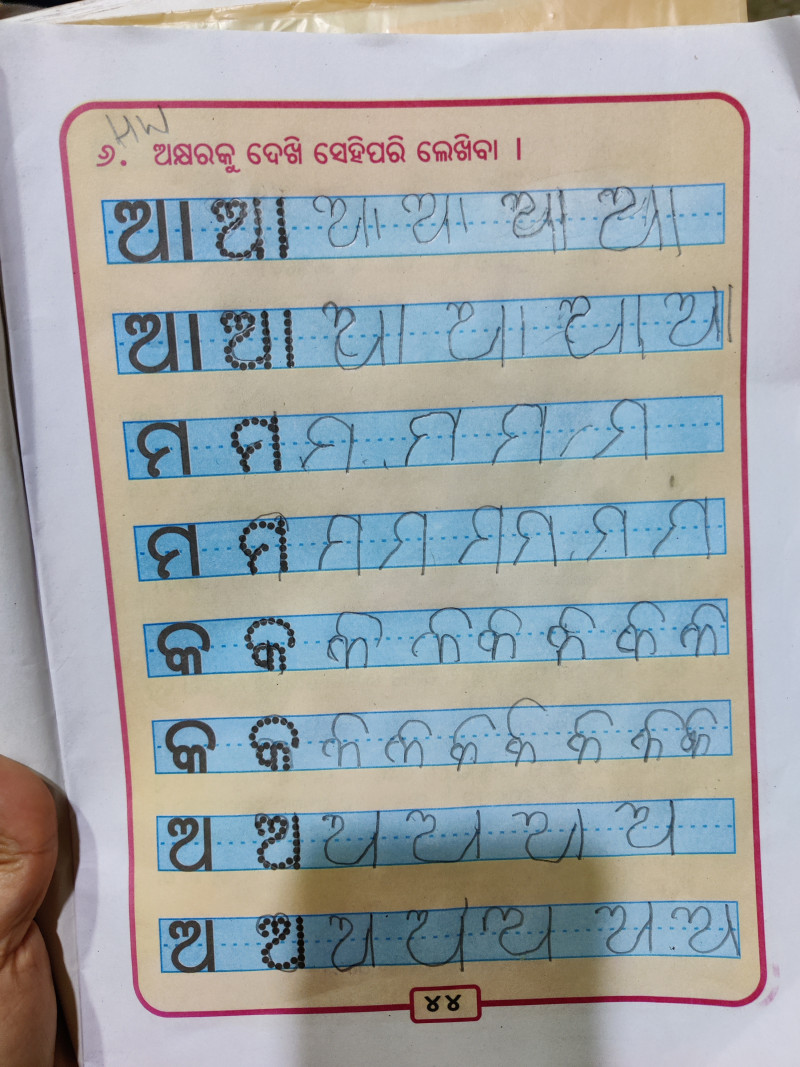 HW
୬. ଅକ୍ଷରକୁ ଦେଖି ସେହିପରି ଲେଖିବା ।
ଆ ଆ ଆ ଆ ଆ ଆ
ଆ ଆ ଆ ଆ ଆ ଆ
ମ ମ ମ ମ ମ ମ
ମ ମ ମ ମ ମ ମ ମ ମ
କ କ କ କ କ କ କ କ
କ କ କ କ କ କ କ କ କ
ଅ ଅ ଅ ଅ ଅ ଅ
ଅ ଅ ଅ ଅ ଅ ଅ ଅ
୪୪